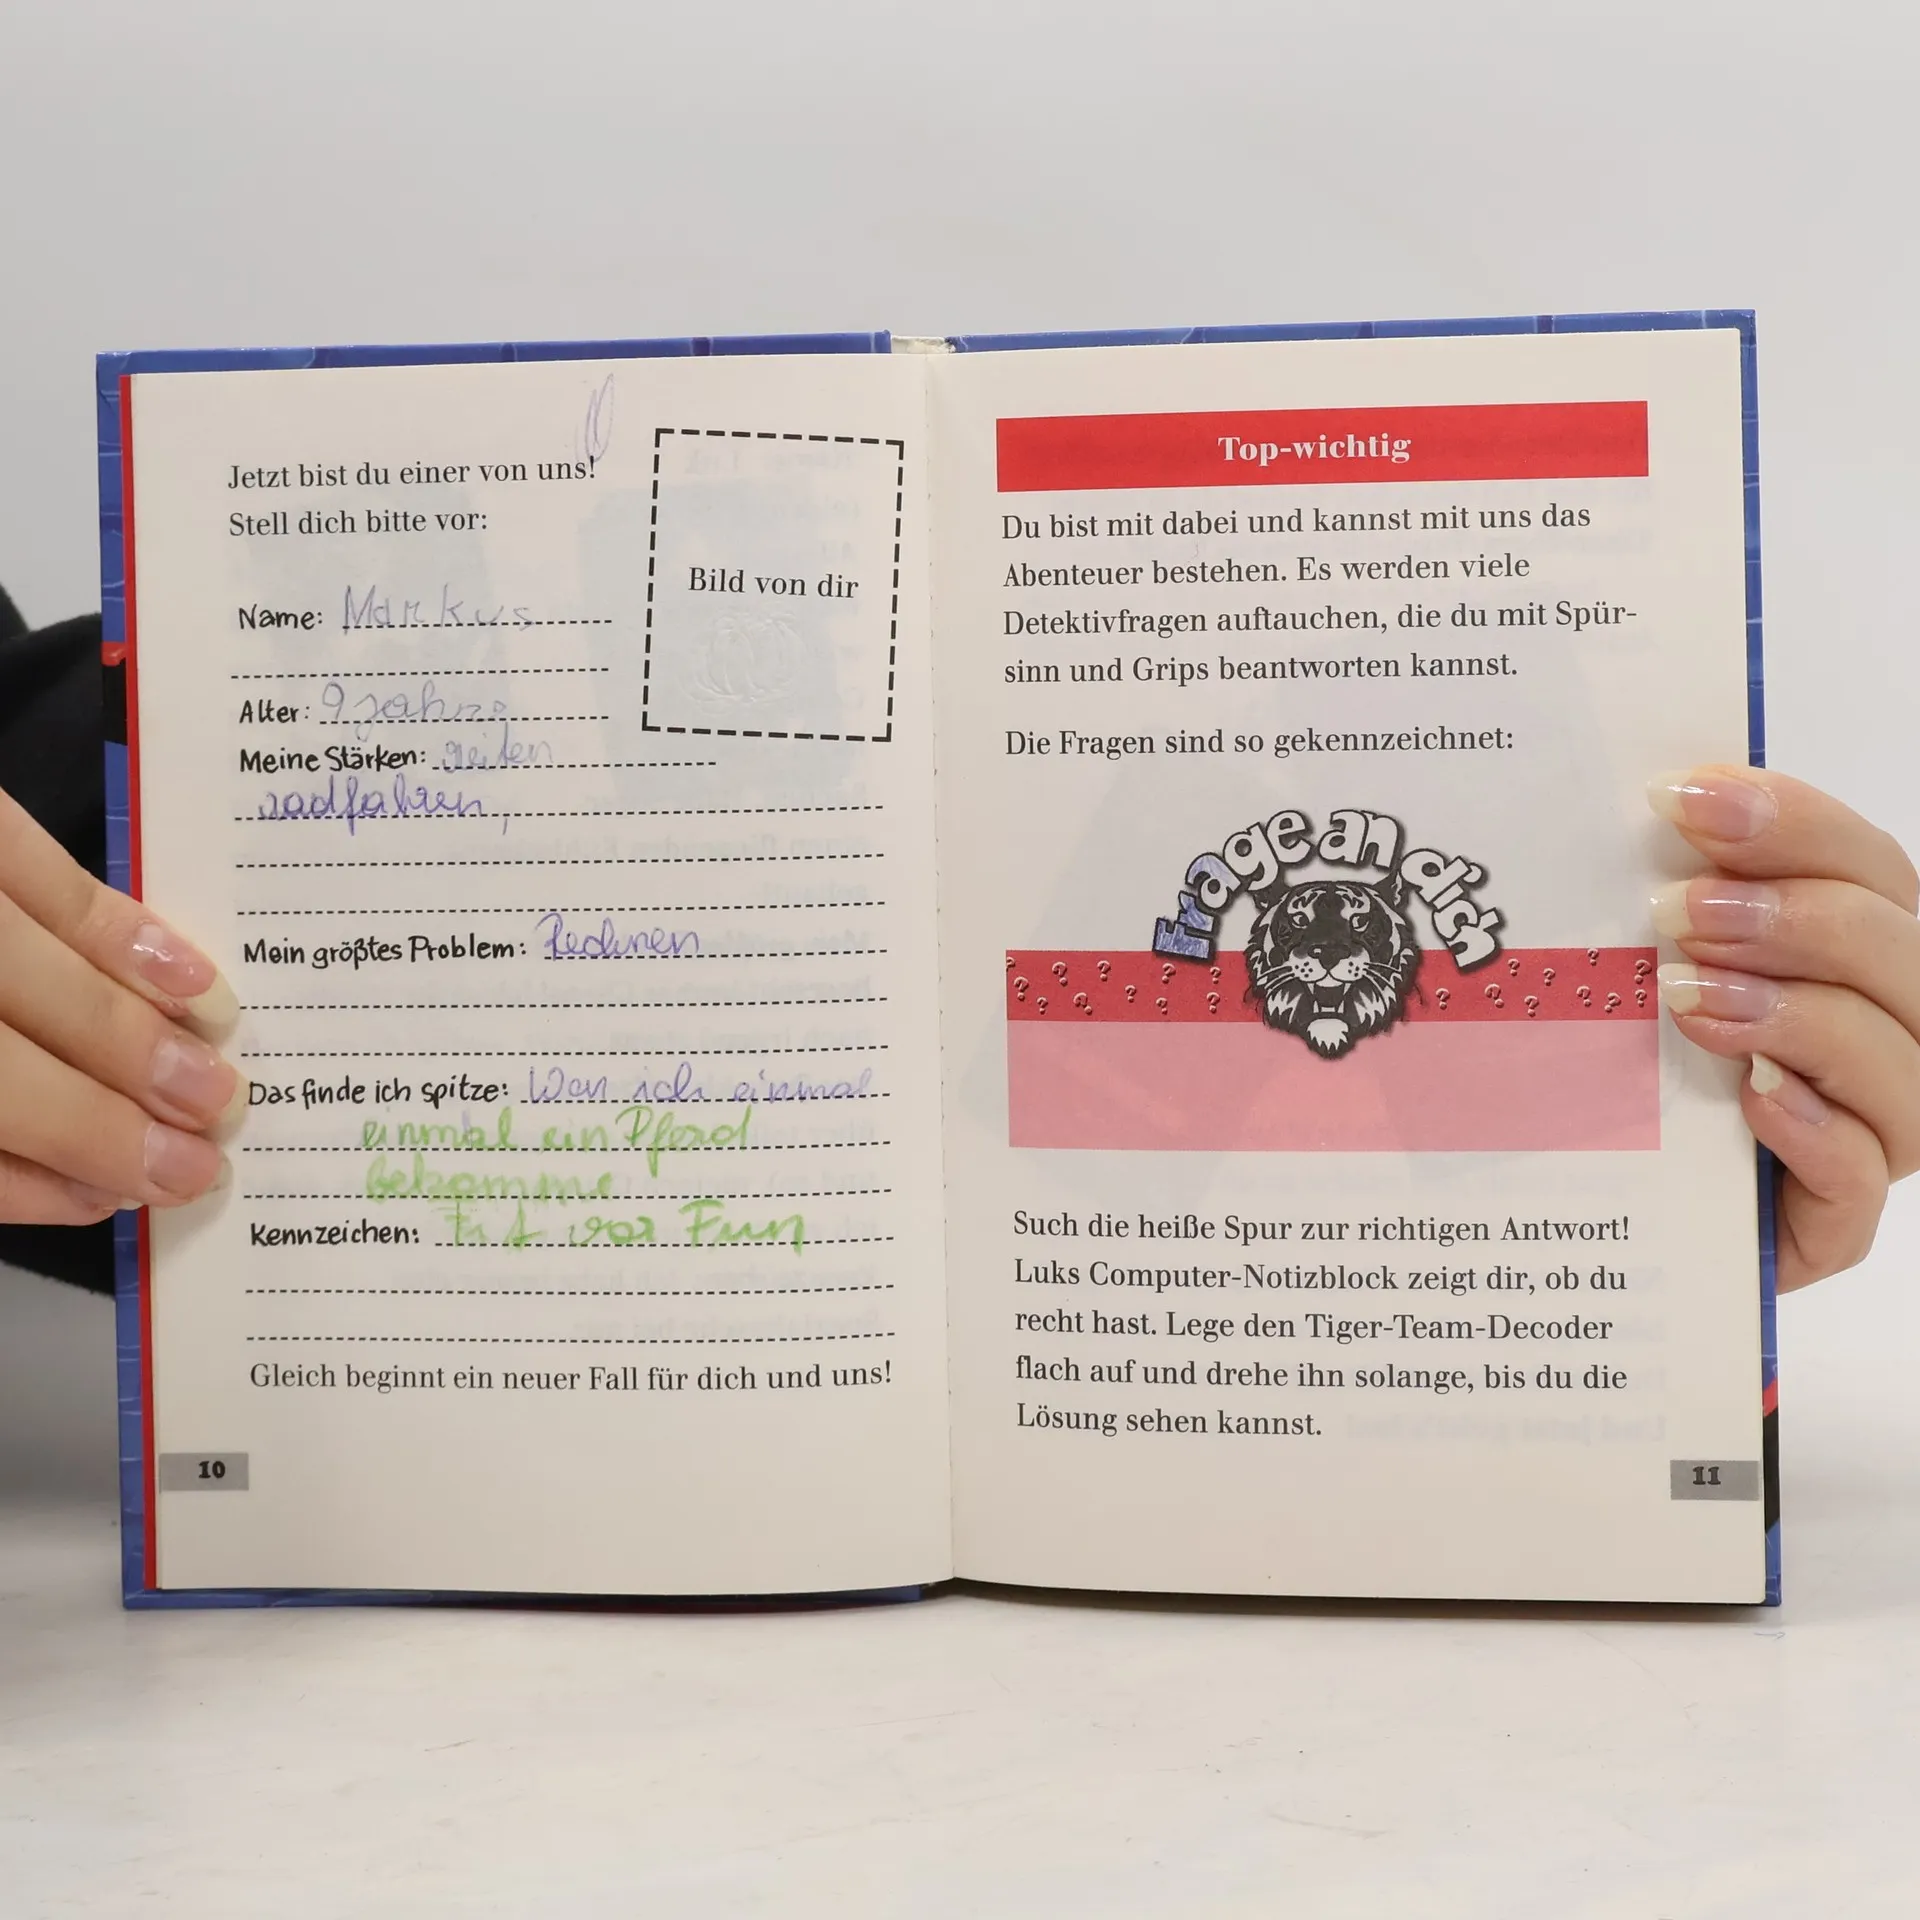 Jetzt bist du einer von uns!
Stell dich bitte vor:
Bild von dir
Name: Markus
Alter: 9 Jahre
Meine Stärken: reiten
radfahren,
Mein größtes Problem: Rechnen
Das finde ich spitze: Wen ich einmal
einmal ein Pferd
bekomme
Kennzeichen: Fit vor Fun
Gleich beginnt ein neuer Fall für dich und uns!
10
Top-wichtig
Du bist mit dabei und kannst mit uns das
Abenteuer bestehen. Es werden viele
Detektivfragen auftauchen, die du mit Spür-
sinn und Grips beantworten kannst.
Die Fragen sind so gekennzeichnet:
Frage an dich
Such die heiße Spur zur richtigen Antwort!
Luks Computer-Notizblock zeigt dir, ob du
recht hast. Lege den Tiger-Team-Decoder
flach auf und drehe ihn solange, bis du die
Lösung sehen kannst.
11